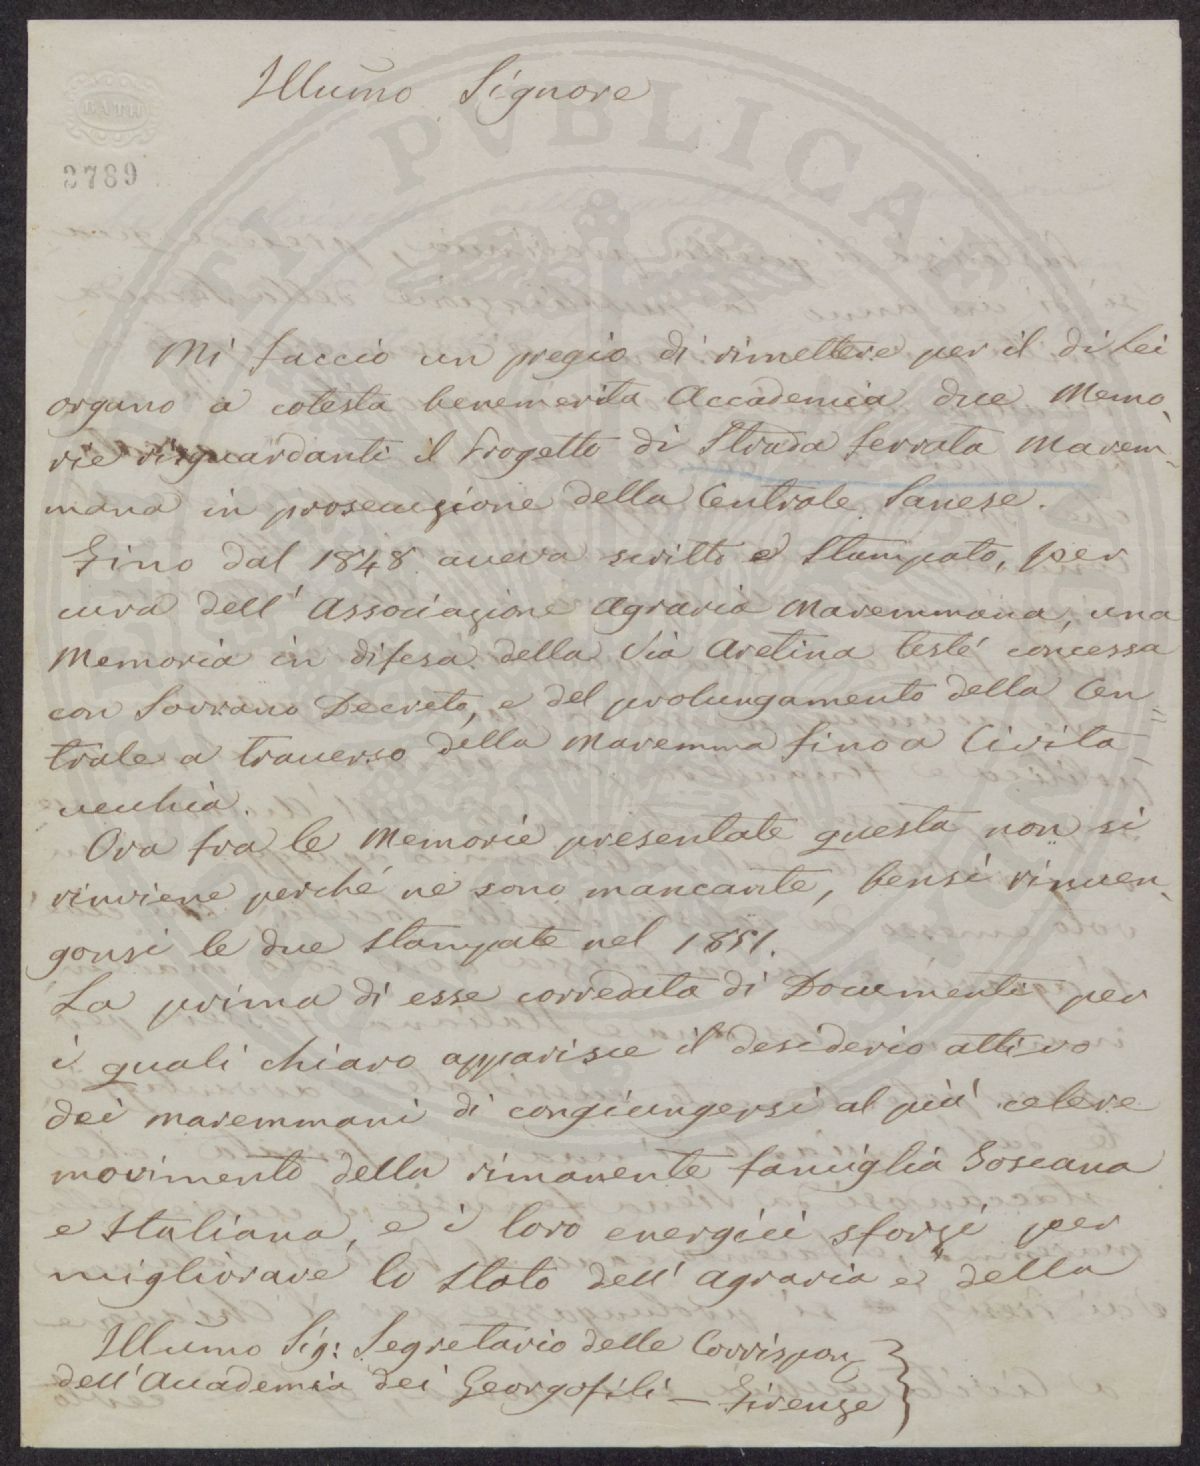 Illumo Signore
BATH
2789
PVBLICAE
Mi faccio un pregio di rimettere per il di Lei
organo a cotesta benemerita Accademia due Memo-
rie risguardanti il Progetto di Strada ferrata Marem-
mana in prosecuzione della Centrale Sanese.
Fino dal 1848 aveva scritto e Stampato, per
cura dell' Associazione Agraria Maremmana, una
Memoria in difesa della Via Aretina testé concessa
con Sovrano Decreto, e del prolungamento della Cen=
trale a traverso della Maremma fino a Civita
vecchia.
Ora fra le Memorie presentate questa non si
rinviene perché ne sono mancante, bensi rinven-
gonsi le due Stampate nel 1851.
La prima di esse corredata di Documenti per
i quali chiaro apparisce il desiderio attivo
dei maremmani di congiungersi al più celere
movimento della rimanente famiglia Toscana
e Italiana, e i loro energici sforzi per
migliorare lo Stato dell' agraria e della
Illumo Sig: Segretario delle Corrispon
dell' Accademia dei Georgofili — Firenze